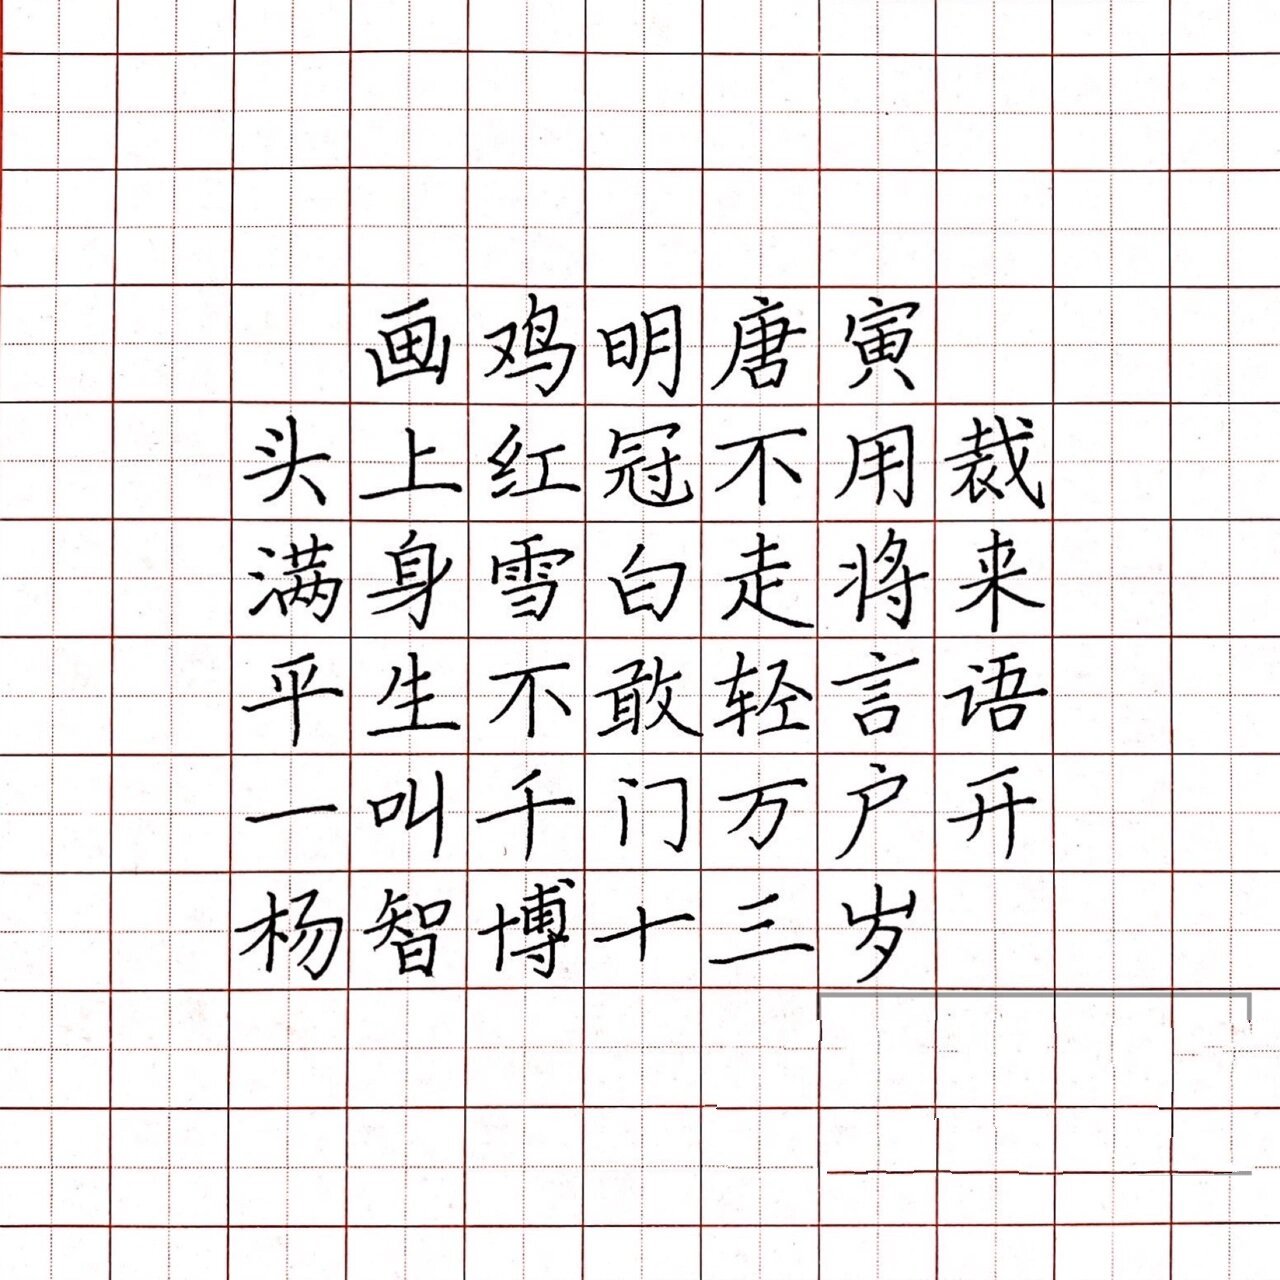 画鸡明唐寅
头上红冠不用裁
满身雪白走将来
平生不敢轻言语
一叫千门万户开
杨智博十三岁